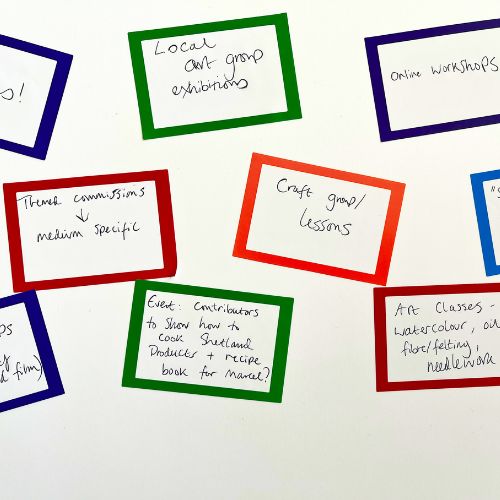 s!
Local
art group
exhibitions
Online workshops
Themed commissions
↓
medium specific
Craft group/
lessons
"S
ps
d film)
Event: Contributors
to show how to
cook Shetland
Products + recipe
book for Marcel?
Art Classes -
watercolour, oil
fibre/felting,
needlework